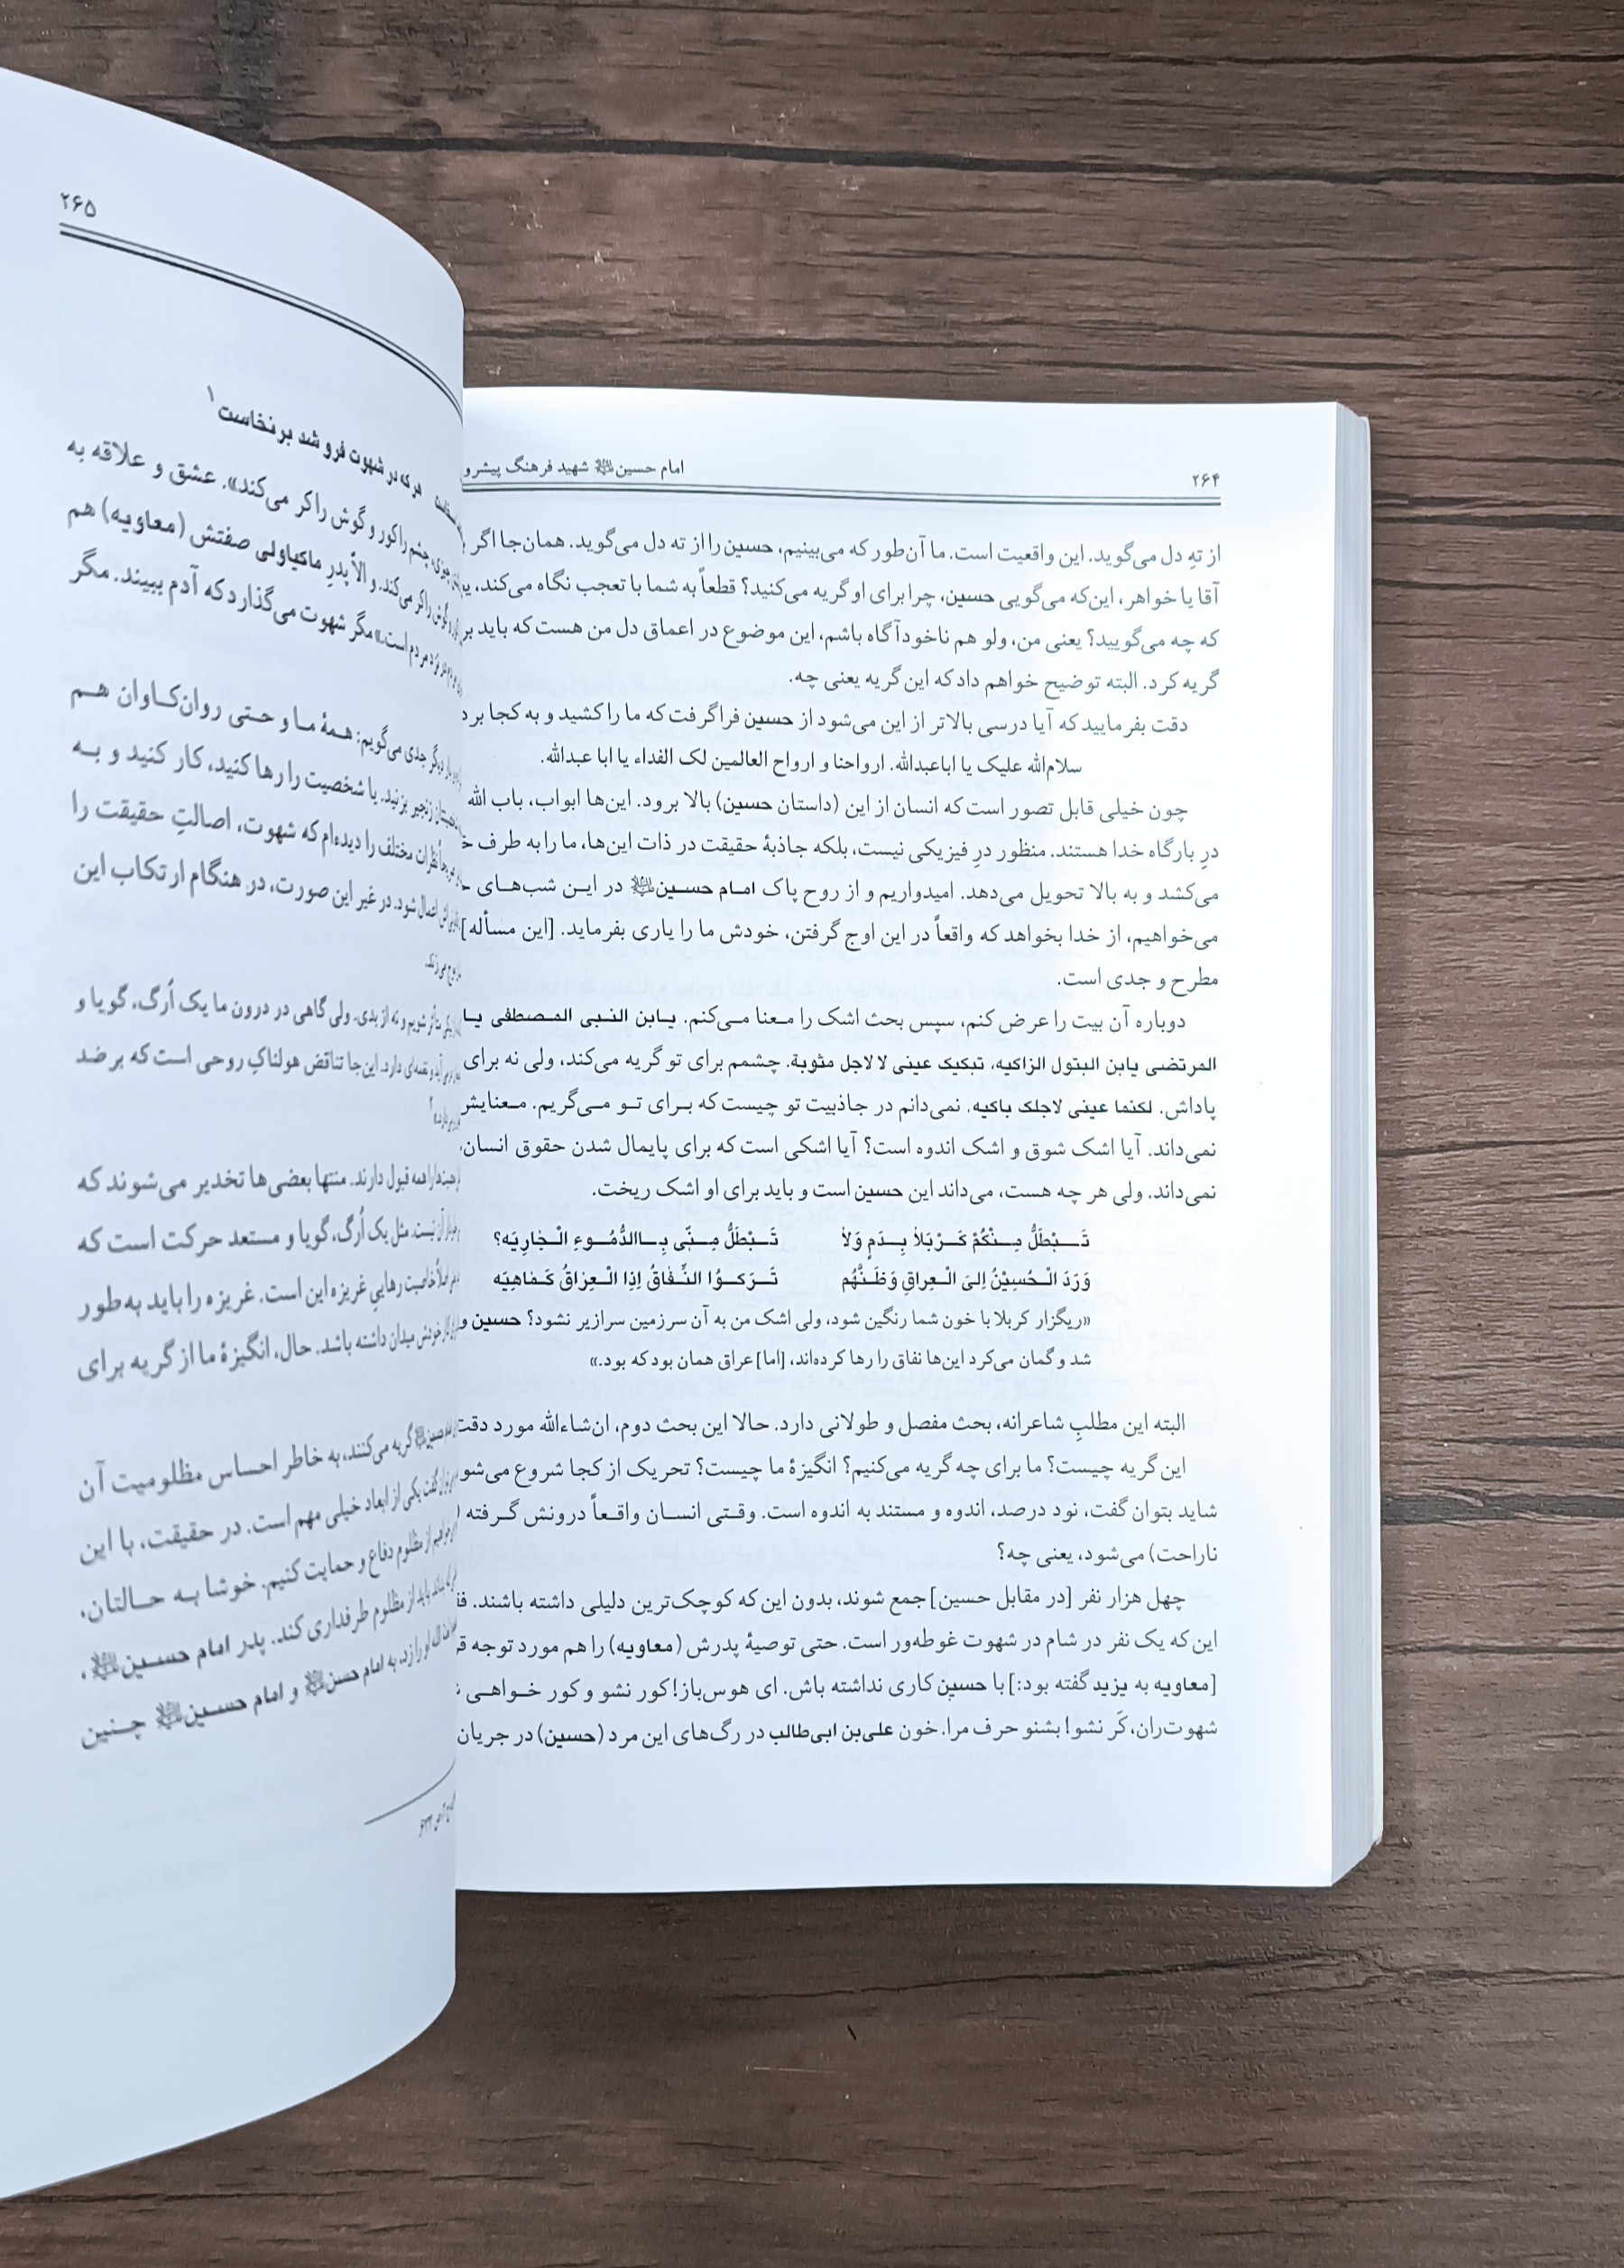 ۲۶۴
امام حسین شهید فرهنگ پیشرو
از تهِ دل می‌گوید. این واقعیت است. ما آن‌طور که می‌بینیم، حسین را از ته دل می‌گوید. همان‌جا اگر
آقا یا خواهر، این‌که می‌گویی حسین، چرا برای او گریه می‌کنید؟ قطعاً به شما با تعجب نگاه می‌کند،
که چه می‌گویید؟ یعنی من، ولو هم ناخودآگاه باشم، این موضوع در اعماق دل من هست که باید
گریه کرد. البته توضیح خواهم داد که این گریه یعنی چه.
دقت بفرمایید که آیا درسی بالاتر از این می‌شود از حسین فرا گرفت که ما را کشید و به کجا برد
سلام‌الله علیک یا اباعبدالله. ارواحنا و ارواح العالمین لک الفداء یا ابا عبدالله.
چون خیلی قابل تصور است که انسان از این (داستان حسین) بالا برود. این‌ها ابواب، باب الله
درِ بارگاه خدا هستند. منظور درِ فیزیکی نیست، بلکه جاذبهٔ حقیقت در ذات این‌ها، ما را به طرف
می‌کشد و به بالا تحویل می‌دهد. امیدواریم و از روح پاک امام حسین در این شب‌های
می‌خواهیم، از خدا بخواهد که واقعاً در این اوج گرفتن، خودش ما را یاری بفرماید. [این مسأله]
مطرح و جدی است.
دوباره آن بیت را عرض کنم، سپس بحث اشک را معنا می‌کنم. یابن النبی المصطفی یا
المرتضی یابن البتول الزاکیه، تبکیک عینی لا لاجل مثوبة. چشمم برای تو گریه می‌کند، ولی نه برای
پاداش. لکنما عینی لاجلک باکیه. نمی‌دانم در جاذبیت تو چیست که برای تو می‌گریم. معنایش
نمی‌داند. آیا اشک شوق و اشک اندوه است؟ آیا اشکی است که برای پایمال شدن حقوق انسان
نمی‌داند. ولی هر چه هست، می‌داند این حسین است و باید برای او اشک ریخت.
تَبْطَلُّ مِنْکُمْ کَرْبَلاٰ بِدَمٍ وَلاٰ تَبْطَلُّ مِنّی بِاالدُّمُوعِ الْجٰارِیَه؟
وَرَدَ الْحُسِیْنُ اِلیَ الْعِراقِ وَظَنَّهُم تَرَکوُا النِّفٰاقُ اِذِا الْعِرٰاقُ کَمٰاهِیَه
«ریگزار کربلا با خون شما رنگین شود، ولی اشک من به آن سرزمین سرازیر نشود؟ حسین و
شد و گمان می‌کرد این‌ها نفاق را رها کرده‌اند، [اما] عراق همان بود که بود.»
البته این مطلبِ شاعرانه، بحث مفصل و طولانی دارد. حالا این بحث دوم، ان‌شاءالله مورد دقت
این گریه چیست؟ ما برای چه گریه می‌کنیم؟ انگیزهٔ ما چیست؟ تحریک از کجا شروع می‌شو
شاید بتوان گفت، نود درصد، اندوه و مستند به اندوه است. وقتی انسان واقعاً درونش گرفته
ناراحت) می‌شود، یعنی چه؟
چهل هزار نفر [در مقابل حسین] جمع شوند، بدون این‌که کوچک‌ترین دلیلی داشته باشند.
این که یک نفر در شام در شهوت غوطه‌ور است. حتی توصیهٔ پدرش (معاویه) را هم مورد توجه
[معاویه به یزید گفته بود:] با حسین کاری نداشته باش. ای هوس‌باز! کور نشو و کور خواهی
شهوت‌ران، کَر نشو! بشنو حرف مرا. خون علی‌بن ابی‌طالب در رگ‌های این مرد (حسین) در جریان
۲۶۵
هر که در شهوت فرو شد برنخاست۱
چشم را کور و گوش را کر می‌کند». عشق و علاقه به
گوش را کر می‌کند. و الاّ پدرِ ماکیاولی صفتش (معاویه) هم
مردم است.» مگر شهوت می‌گذارد که آدم ببیند. مگر
بار دیگر جدی می‌گویم: همهٔ ما و حتی روان‌کاوان هم
زنجیر بزنید. یا شخصیت را رها کنید، کار کنید و به
نظرات مختلف را دیده‌ام که شهوت، اصالتِ حقیقت را
اعمال شود. در غیر این صورت، در هنگام ارتکاب این
متأثر شویم و نه از بدی. ولی گاهی در درون ما یک اُرگ، گویا و
دارد. این‌جا تناقض هولناکِ روحی است که بر ضد
را همه قبول دارند. منتها بعضی‌ها تخدیر می‌شوند که
آن نیست. مثل یک اُرگ، گویا و مستعد حرکت است که
خاصیت رهاییِ غریزه این است. غریزه را باید به‌طور
خودش میدان داشته باشد. حال، انگیزهٔ ما از گریه برای
گریه می‌کنند، به خاطر احساس مظلومیت آن
گفت یکی از ابعاد خیلی مهم است. در حقیقت، با این
از مظلوم دفاع و حمایت کنیم. خوشا به حالتان،
باید از مظلوم طرفداری کند. پدر امام حسین،
او را زد، به امام حسن و امام حسین چنین